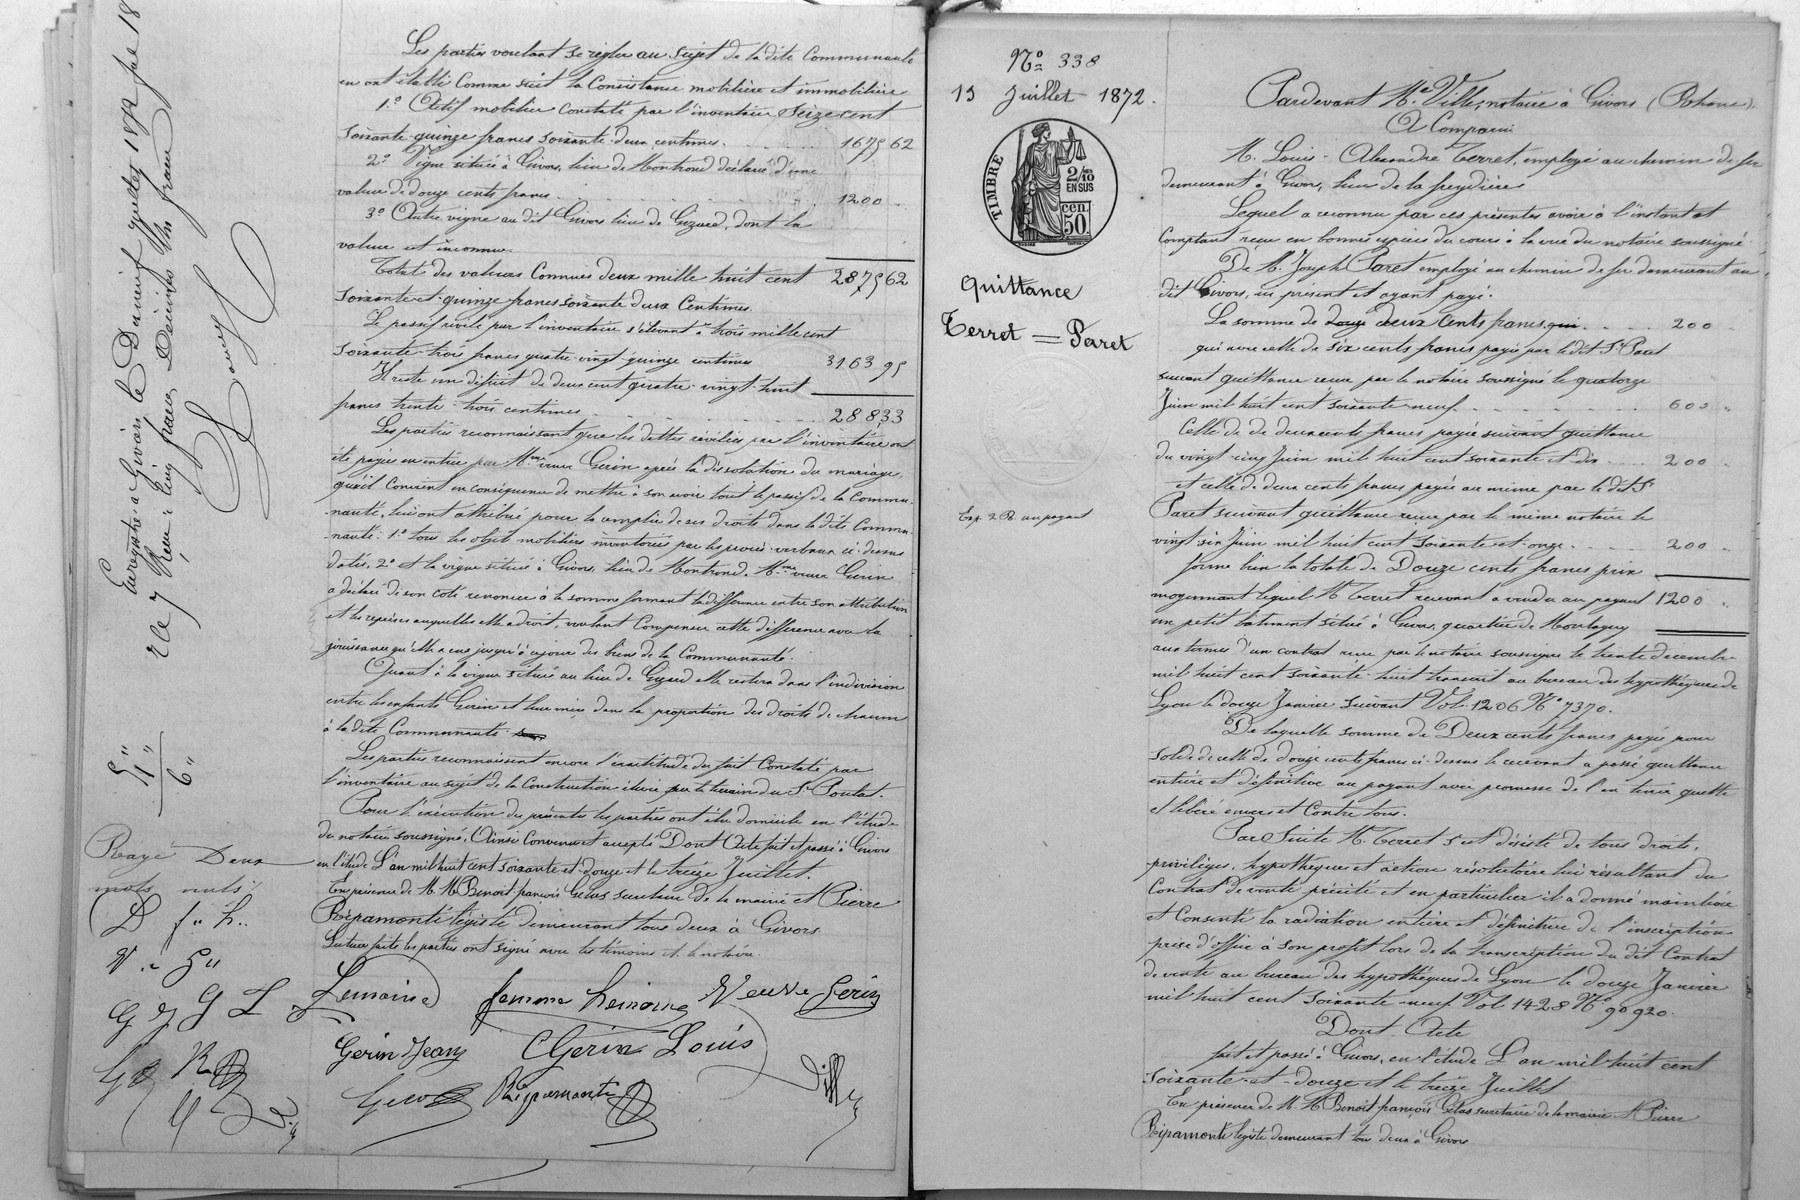 Les parties voulant se régler au sujet de la dite Communauté
en ont établi comme suit la Consistance mobilière et immobilière
1.° Actif mobilier constaté par l'inventaire Seize cent
soixante-quinze francs soixante-deux centimes. 1675 62
2.° Vigne située à Givors, lieu de Montrond déclarée d'une
valeur de douze cents francs 1200
3.° Autre vigne au dit Givors lieu de Gizard, dont la
valeur est inconnue.
Total des valeurs Connues deux mille huit cent 2875 62
soixante-et-quinze francs soixante deux Centimes.
Le passif révélé par l'inventaire s'élevant à trois mille cent
soixante-trois francs quatre-vingt-quinze centimes 3163 95
Il reste un déficit de deux cent quatre-vingt-huit
francs trente-trois centimes 288,33
Les parties reconnaissant que les dettes révélées par l'inventaire ont
été payées en entier par Mme veuve Gerin après la dissolution du mariage,
qu'il Convient en conséquence de mettre à son avoir tout le passif de la Commu-
-nauté, lui ont attribué pour la remplir de ses droits dans la dite Commu-
-nauté: 1.° tous les objets mobiliers inventoriés par les procès-verbaux ci-dessus
datés, 2.° et la vigne située à Givors, lieu de Montrond. Mme veuve Gerin
a déclaré de son coté renoncer à la somme formant la différence entre son attribution
et les reprises auxquelles elle a droit, voulant Compenser cette différence avec la
jouissance qu'elle a eue jusqu'à ce jour des biens de la Communauté.
Quant à la vigne située au lieu de Gizard elle restera dans l'indivision
entre les enfants Gerin et leur mère dans la proportion des droits de chacun
à la dite Communauté.
Les parties reconnaissent encore l'exactitude du fait Constaté par
l'inventaire au sujet de la Construction élevée sur le terrain du Sr Poutat.
Pour l'exécution des présentes les parties ont élu domicile en l'étude
du notaire soussigné. Ainsi Convenu et accepté Dont Acte fait et passé à Givors
en l'étude L'an mil huit cent soixante-et-douze et le treize Juillet.
En présence de M.M. Benoit-françois Gelas secrétaire de la mairie et Pierre
Ripamonté légiste demeurant tous deux à Givors
Lecture faite les parties ont signé avec les témoins et le notaire.
Lemoine femme Lemoine Veuve Gerin
Gerin Jean Gerin Louis
Gelas Ripamonté Ville
Enregistré à Givors le Dix neuf juillet 1872 fol 18
Reçu: Cinq francs Décimes Un franc
5 "
1 "
6 "
Rayé Deux
mots nuls
D f" h"
V.e G"
G J G L
N° 338
13 Juillet 1872.
TIMBRE
2/10 EN SUS
50 cen.
Quittance
Terret = Paret
Exp. 2 R. au payant
Pardevant Me Ville, notaire à Givors (Rhône).
A Comparu
M. Louis-Alexandre Terret, employé au chemin de fer
demeurant à Givors, lieu de la freydière
Lequel a reconnu par ces présentes avoir à l'instant et
Comptant reçu en bonnes espèces du cours à la vue du notaire soussigné
De M. Joseph Paret employé au chemin de fer demeurant au
dit Givors, ici présent et ayant payé.
La somme de douze deux Cents francs, qui 200
qui avec celle de six cents francs payée par le dit Sr Paret
suivant quittance reçue par le notaire soussigné le quatorze
Juin mil huit cent soixante-neuf 600
Celle de deux cents francs payée suivant quittance
du vingt-cinq Juin mil huit cent soixante et dix 200
et celle de deux cents francs payée au même par le dit Sr
Paret suivant quittance reçue par le même notaire le
vingt-six Juin mil huit cent soixante-et-onze 200
forme bien la totale de Douze cents francs prix
moyennant lequel M. Terret recevant a vendu au payant 1200
un petit bâtiment situé à Givors, quartier de Montagny
aux termes d'un contrat reçu par le notaire soussigné le trente décembre
mil huit cent soixante-huit transcrit au bureau des hypothèques de
Lyon le douze Janvier suivant Vol. 1206 N° 7370.
De laquelle somme de Deux cents francs payée pour
solde de celle de douze cents francs ci-dessus le recevant a passé quittance
entière et définitive au payant avec promesse de l'en tenir quitte
et libéré envers et Contre tous.
Par Suite M. Terret s'est désisté de tous droits,
privilèges, hypothèques et action résolutoire lui résultant du
Contrat de vente précité et en particulier il a donné mainlevée
et Consenti la radiation entière et définitive de l'inscription
prise d'office à son profit lors de la transcription du dit Contrat
de vente au bureau des hypothèques de Lyon le douze Janvier
mil huit cent soixante-neuf Vol. 1428 N° 90920.
Dont Acte
fait et passé à Givors, en l'étude L'an mil huit cent
soixante-et-douze et le treize Juillet
En présence de M.M. Benoit-françois Gelas secrétaire de la mairie et Pierre
Ripamonté légiste demeurant tous deux à Givors